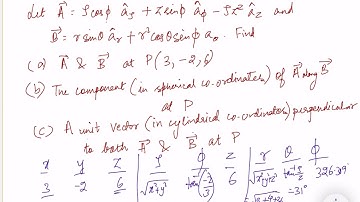 Let A⃗ = ρcosφ âρ + z sinφ âφ − ρz² âz and
B⃗ = r sinθ âr + r² cosθ sinφ aθ. Find
(a) A⃗ & B⃗ at P(3, -2, 6)
(b) The component (in spherical co-ordinates) of A⃗ along B⃗
at P
(c) A unit vector (in cylindrical co-ordinates) perpendicular
to both A⃗ & B⃗ at P
x y z ρ φ z r θ φ
3 -2 6 √x²+y² tan⁻¹(-2/3) 6 √x²+y²+z² 326.39
=31°